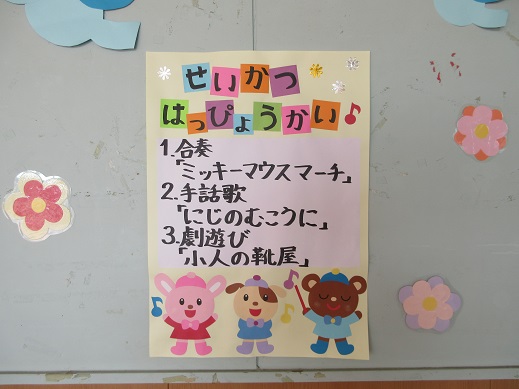 せいかつ
はっぴょうかい
1.合奏
「ミッキーマウスマーチ」
2.手話歌
「にじのむこうに」
3.劇遊び
「小人の靴屋」